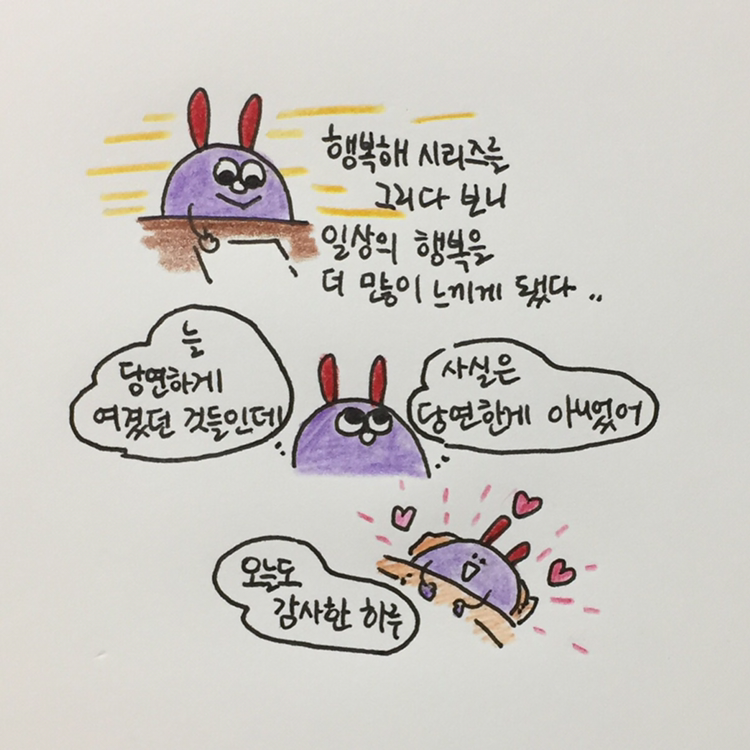 행복해 시리즈를
그리다 보니
일상의 행복을
더 많이 느끼게 됐다..
늘
당연하게
여겼던 것들인데
사실은
당연한게 아니었어
오늘도
감사한 하루